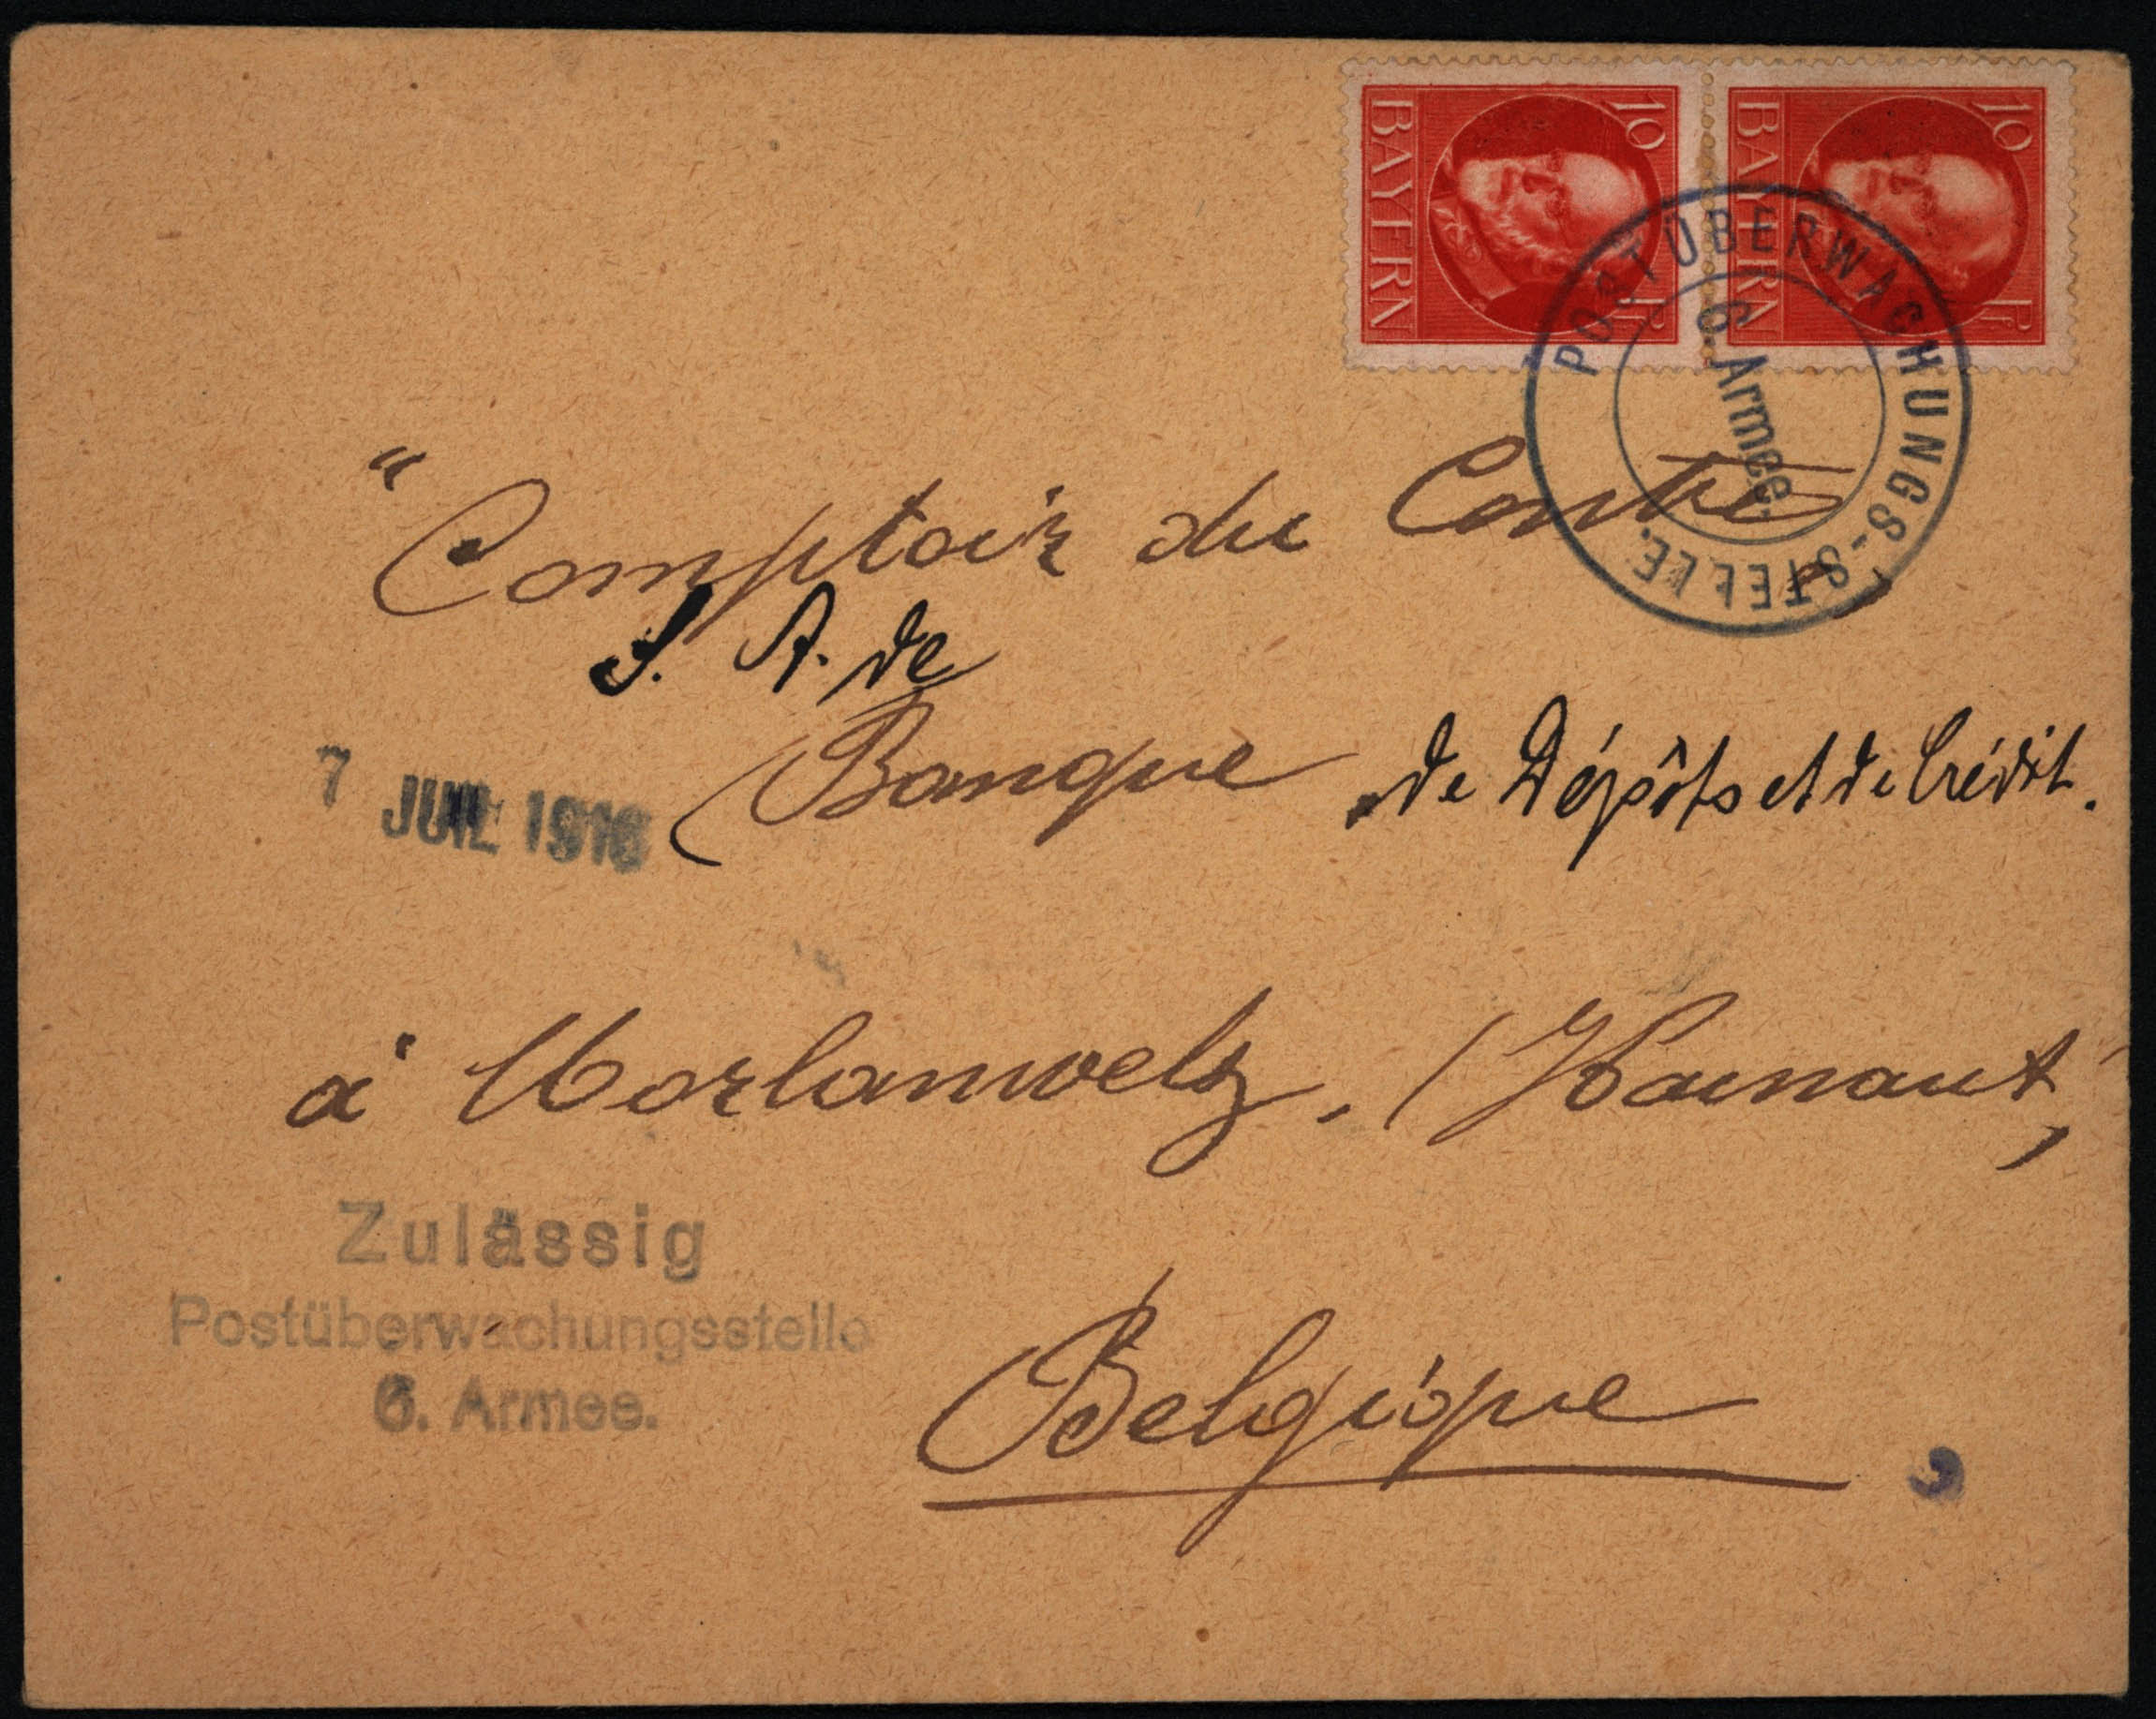 10 10
BAYERN BAYERN
Pf Pf
POSTÜBERWACHUNGS-STELLE.
6. Armee.
"Comptoir du Centre"
S. A. de
Banque de Dépôts et de Crédit.
7 JUIL 1916
à Morlanwelz, (Hainaut)
Zulässig
Postüberwachungsstelle
6. Armee.
Belgique